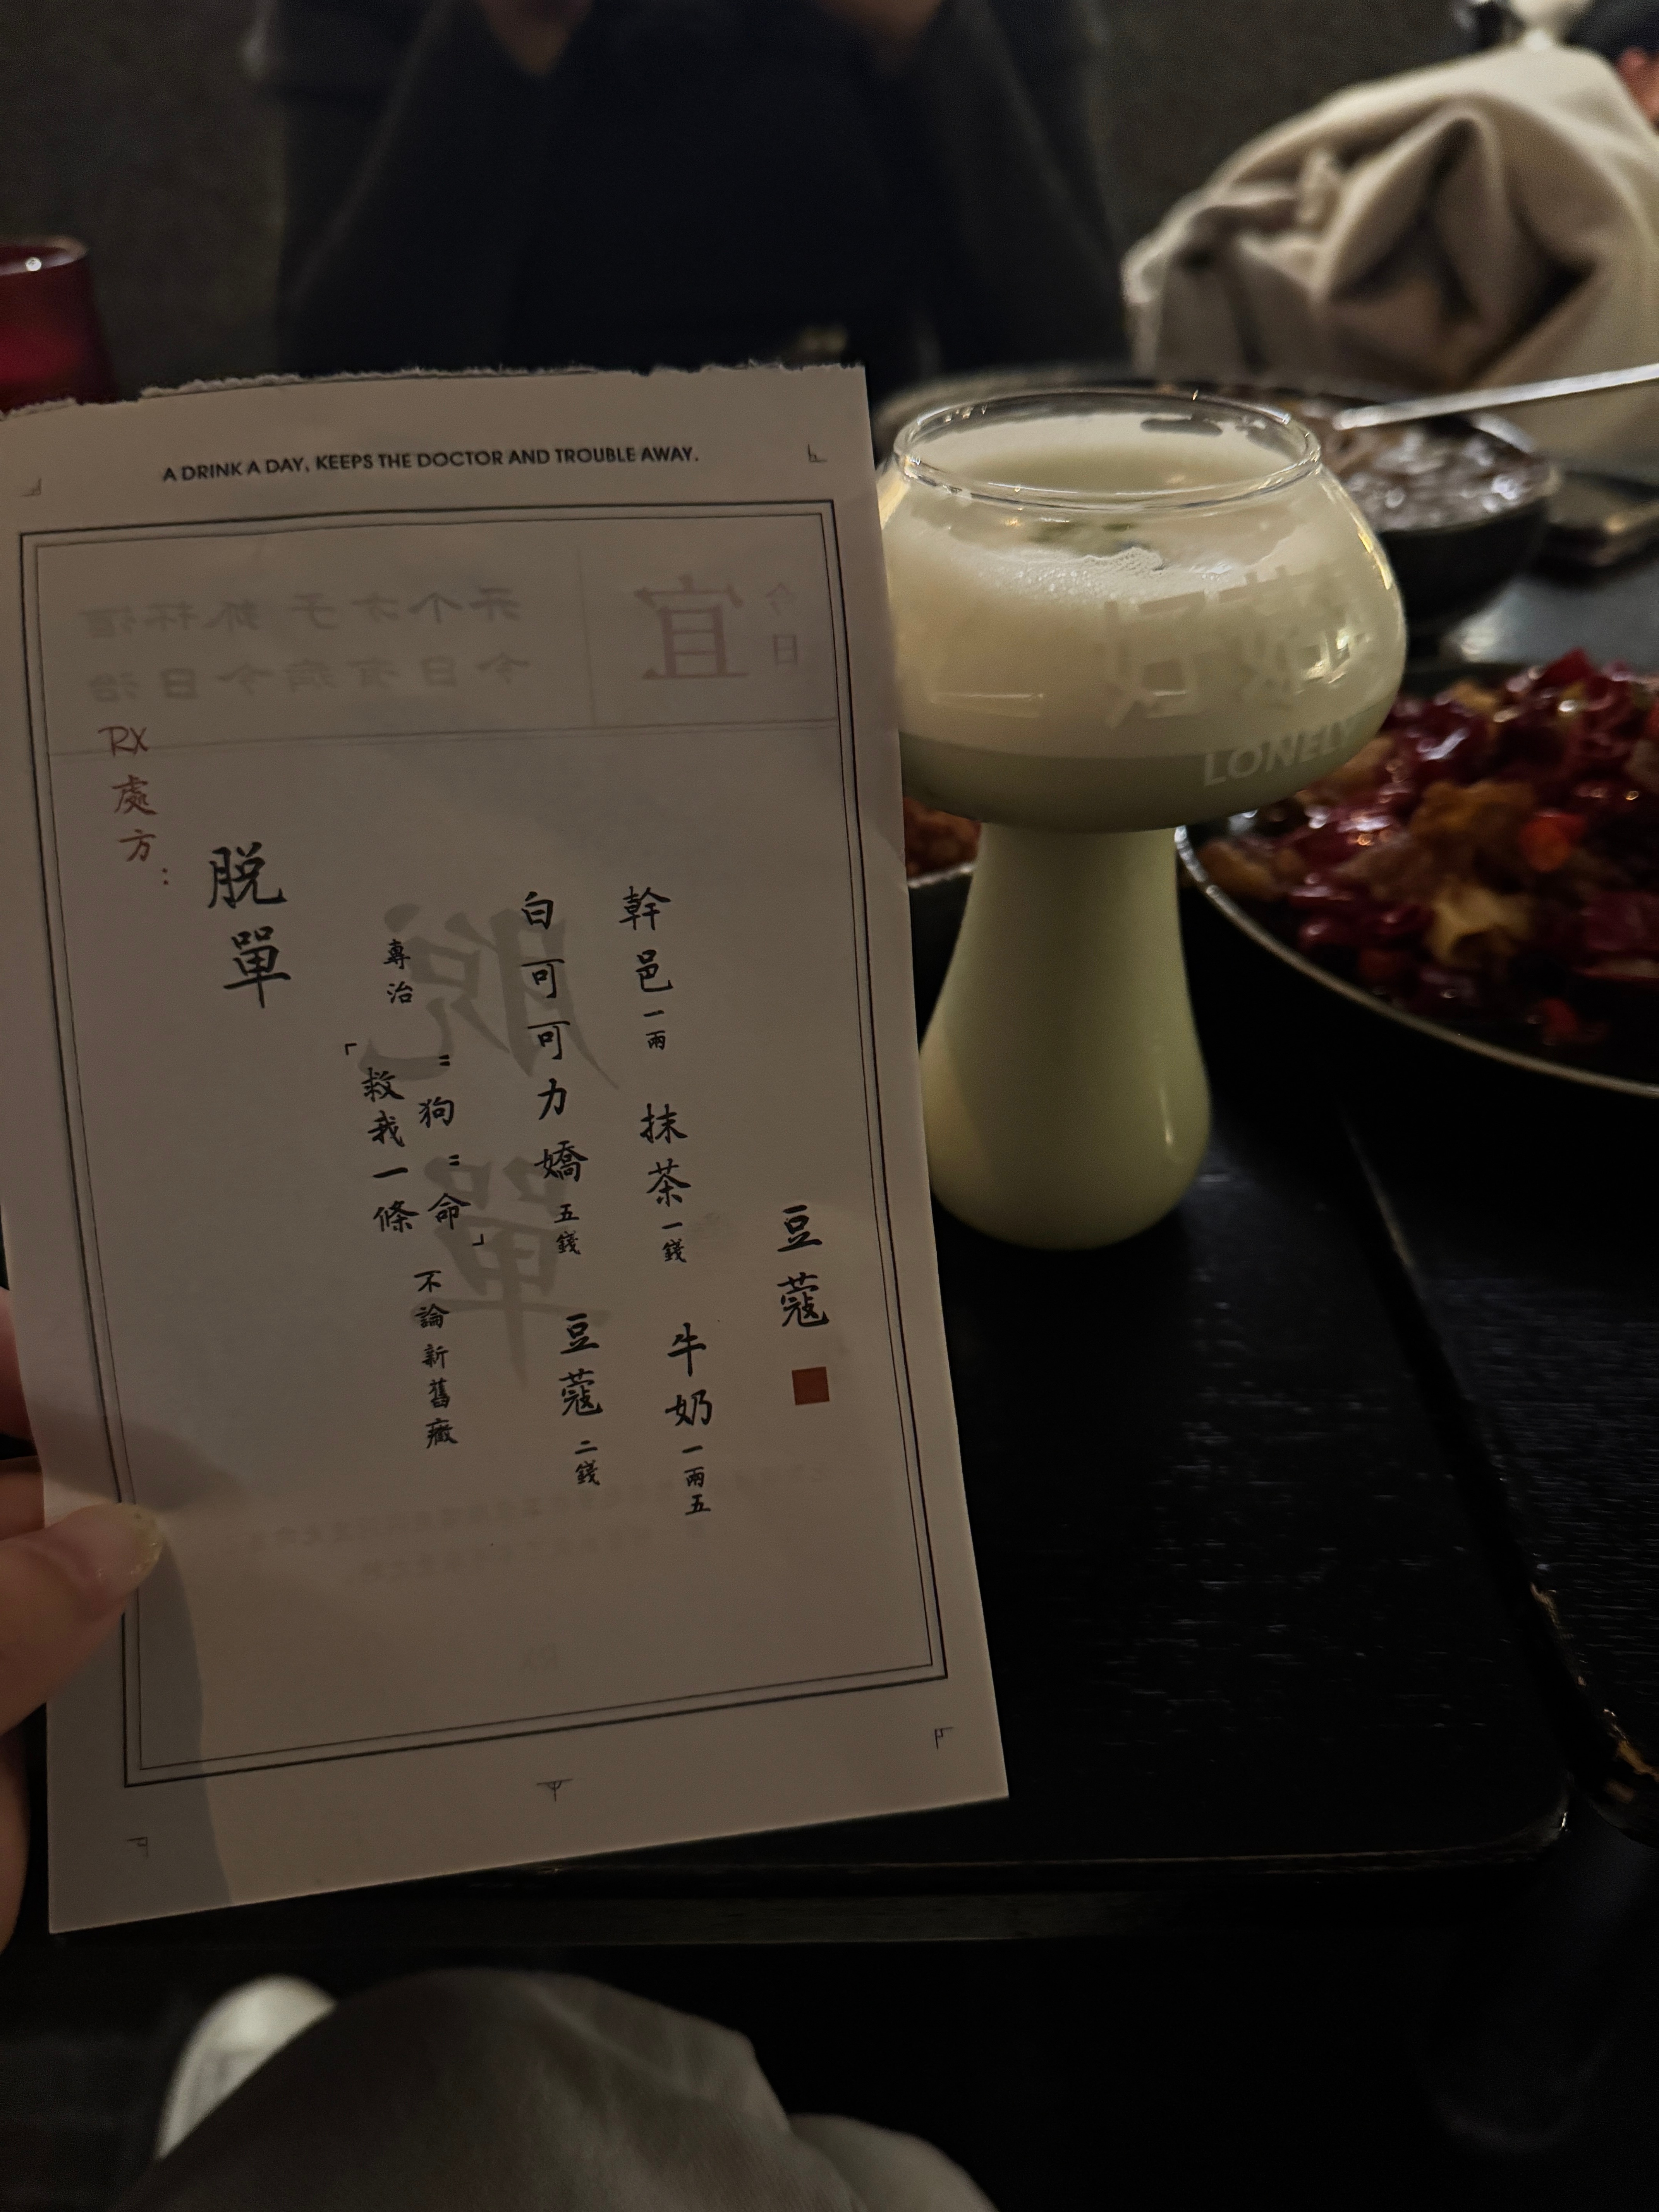 A DRINK A DAY, KEEPS THE DOCTOR AND TROUBLE AWAY.
今日
宜
开个方子 抓杯酒
今日有病今日治
RX處方:
脱單
專治
「救我一條
=狗=命」 不論新舊癥
白可可力嬌 五錢 豆蔻 二錢
幹邑 一兩 抹茶 一錢 牛奶 一兩五
豆蔻
脱單
好
LONELY